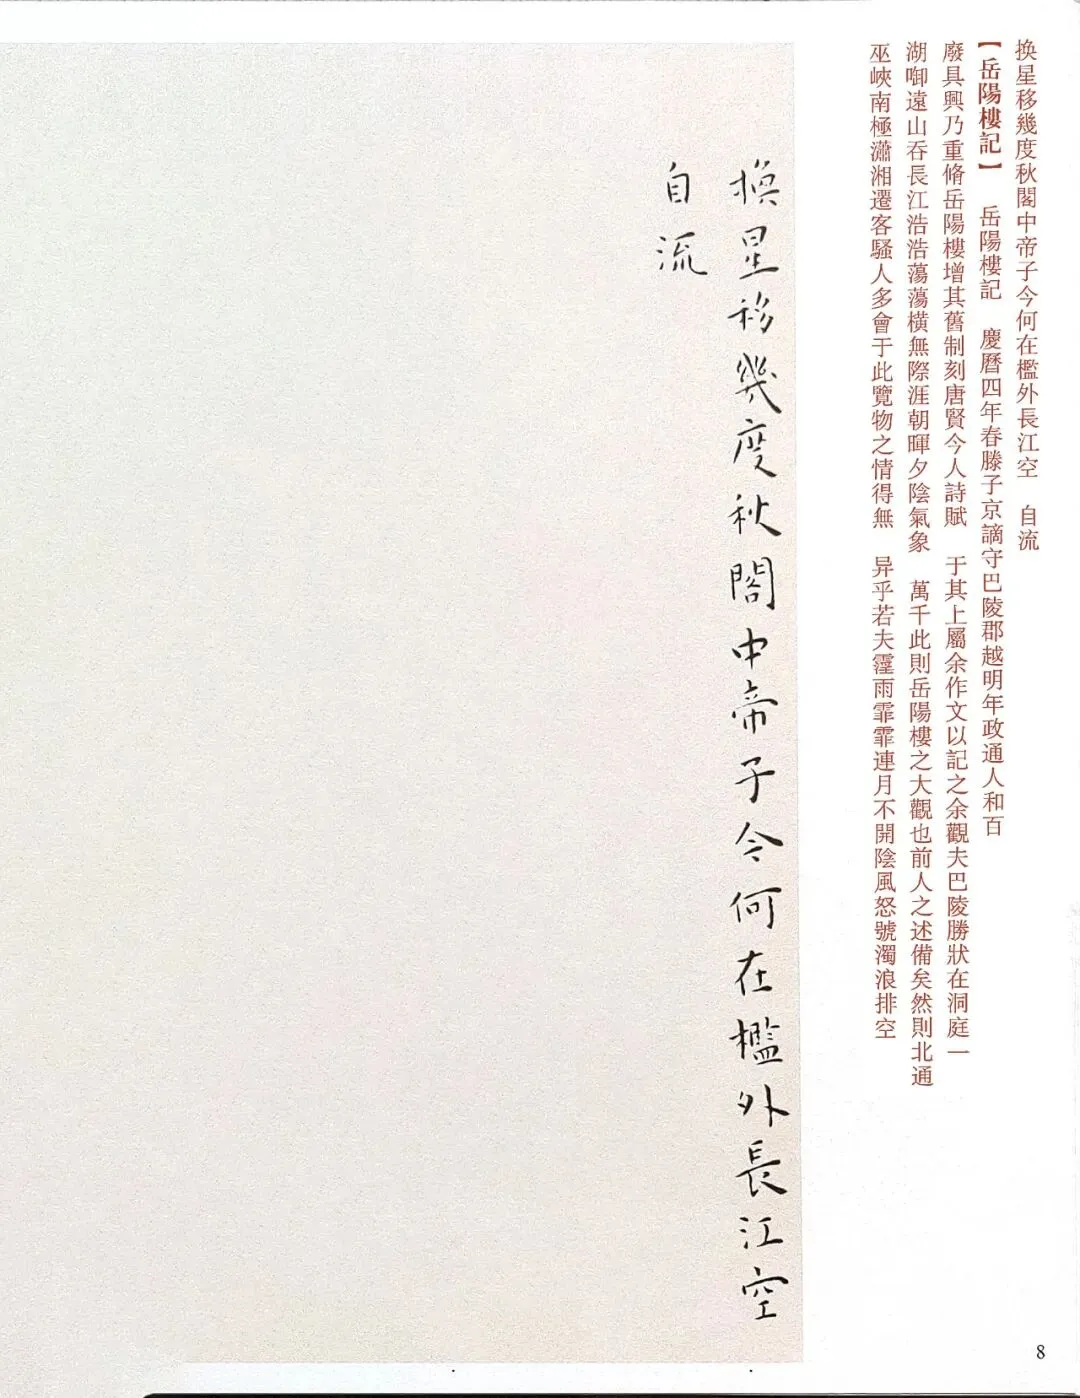 换星移幾度秋閣中帝子今何在檻外長江空　自流
【岳陽樓記】　岳陽樓記　慶曆四年春滕子京謫守巴陵郡越明年政通人和百
廢具興乃重脩岳陽樓增其舊制刻唐賢今人詩賦　于其上屬余作文以記之余觀夫巴陵勝狀在洞庭一
湖啣遠山吞長江浩浩蕩蕩橫無際涯朝暉夕陰氣象　萬千此則岳陽樓之大觀也前人之述備矣然則北通
巫峽南極瀟湘遷客騷人多會于此覽物之情得無　异乎若夫霪雨霏霏連月不開陰風怒號濁浪排空
換星移幾度秋閣中帝子今何在檻外長江空
自流
8